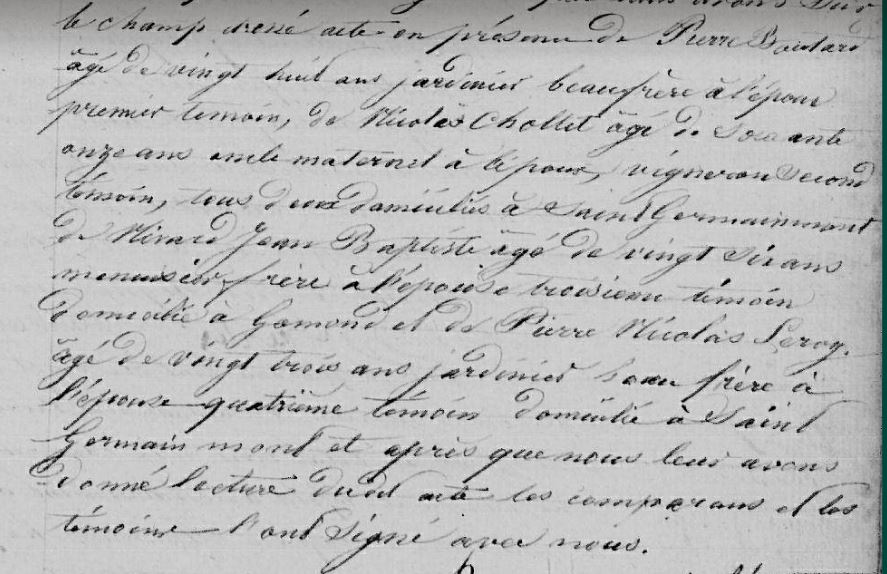 avons Sur
le champ dressé acte en présence de Pierre
âgé de vingt huit ans jardinier beaufrère à l'époux
premier temoin, de Nicolas Chollet âgé de soixante
onze ans oncle maternel à l'époux, vigneron second
témoin, tous deux domiciliés à Saint Germainmont
de Jean Baptiste âgé de vingt six ans
menuisier frère à l'épouse troisieme témoin
domicilié à Gomond et de Pierre Nicolas Leroy.
âgé de vingt trois ans jardinier beau frère à
l'épouse quatrième témoin domicilié à Saint
Germain mont et après que nous leur avons
donné lecture dudit acte les comparans et les
témoins l'ont signé avec nous.